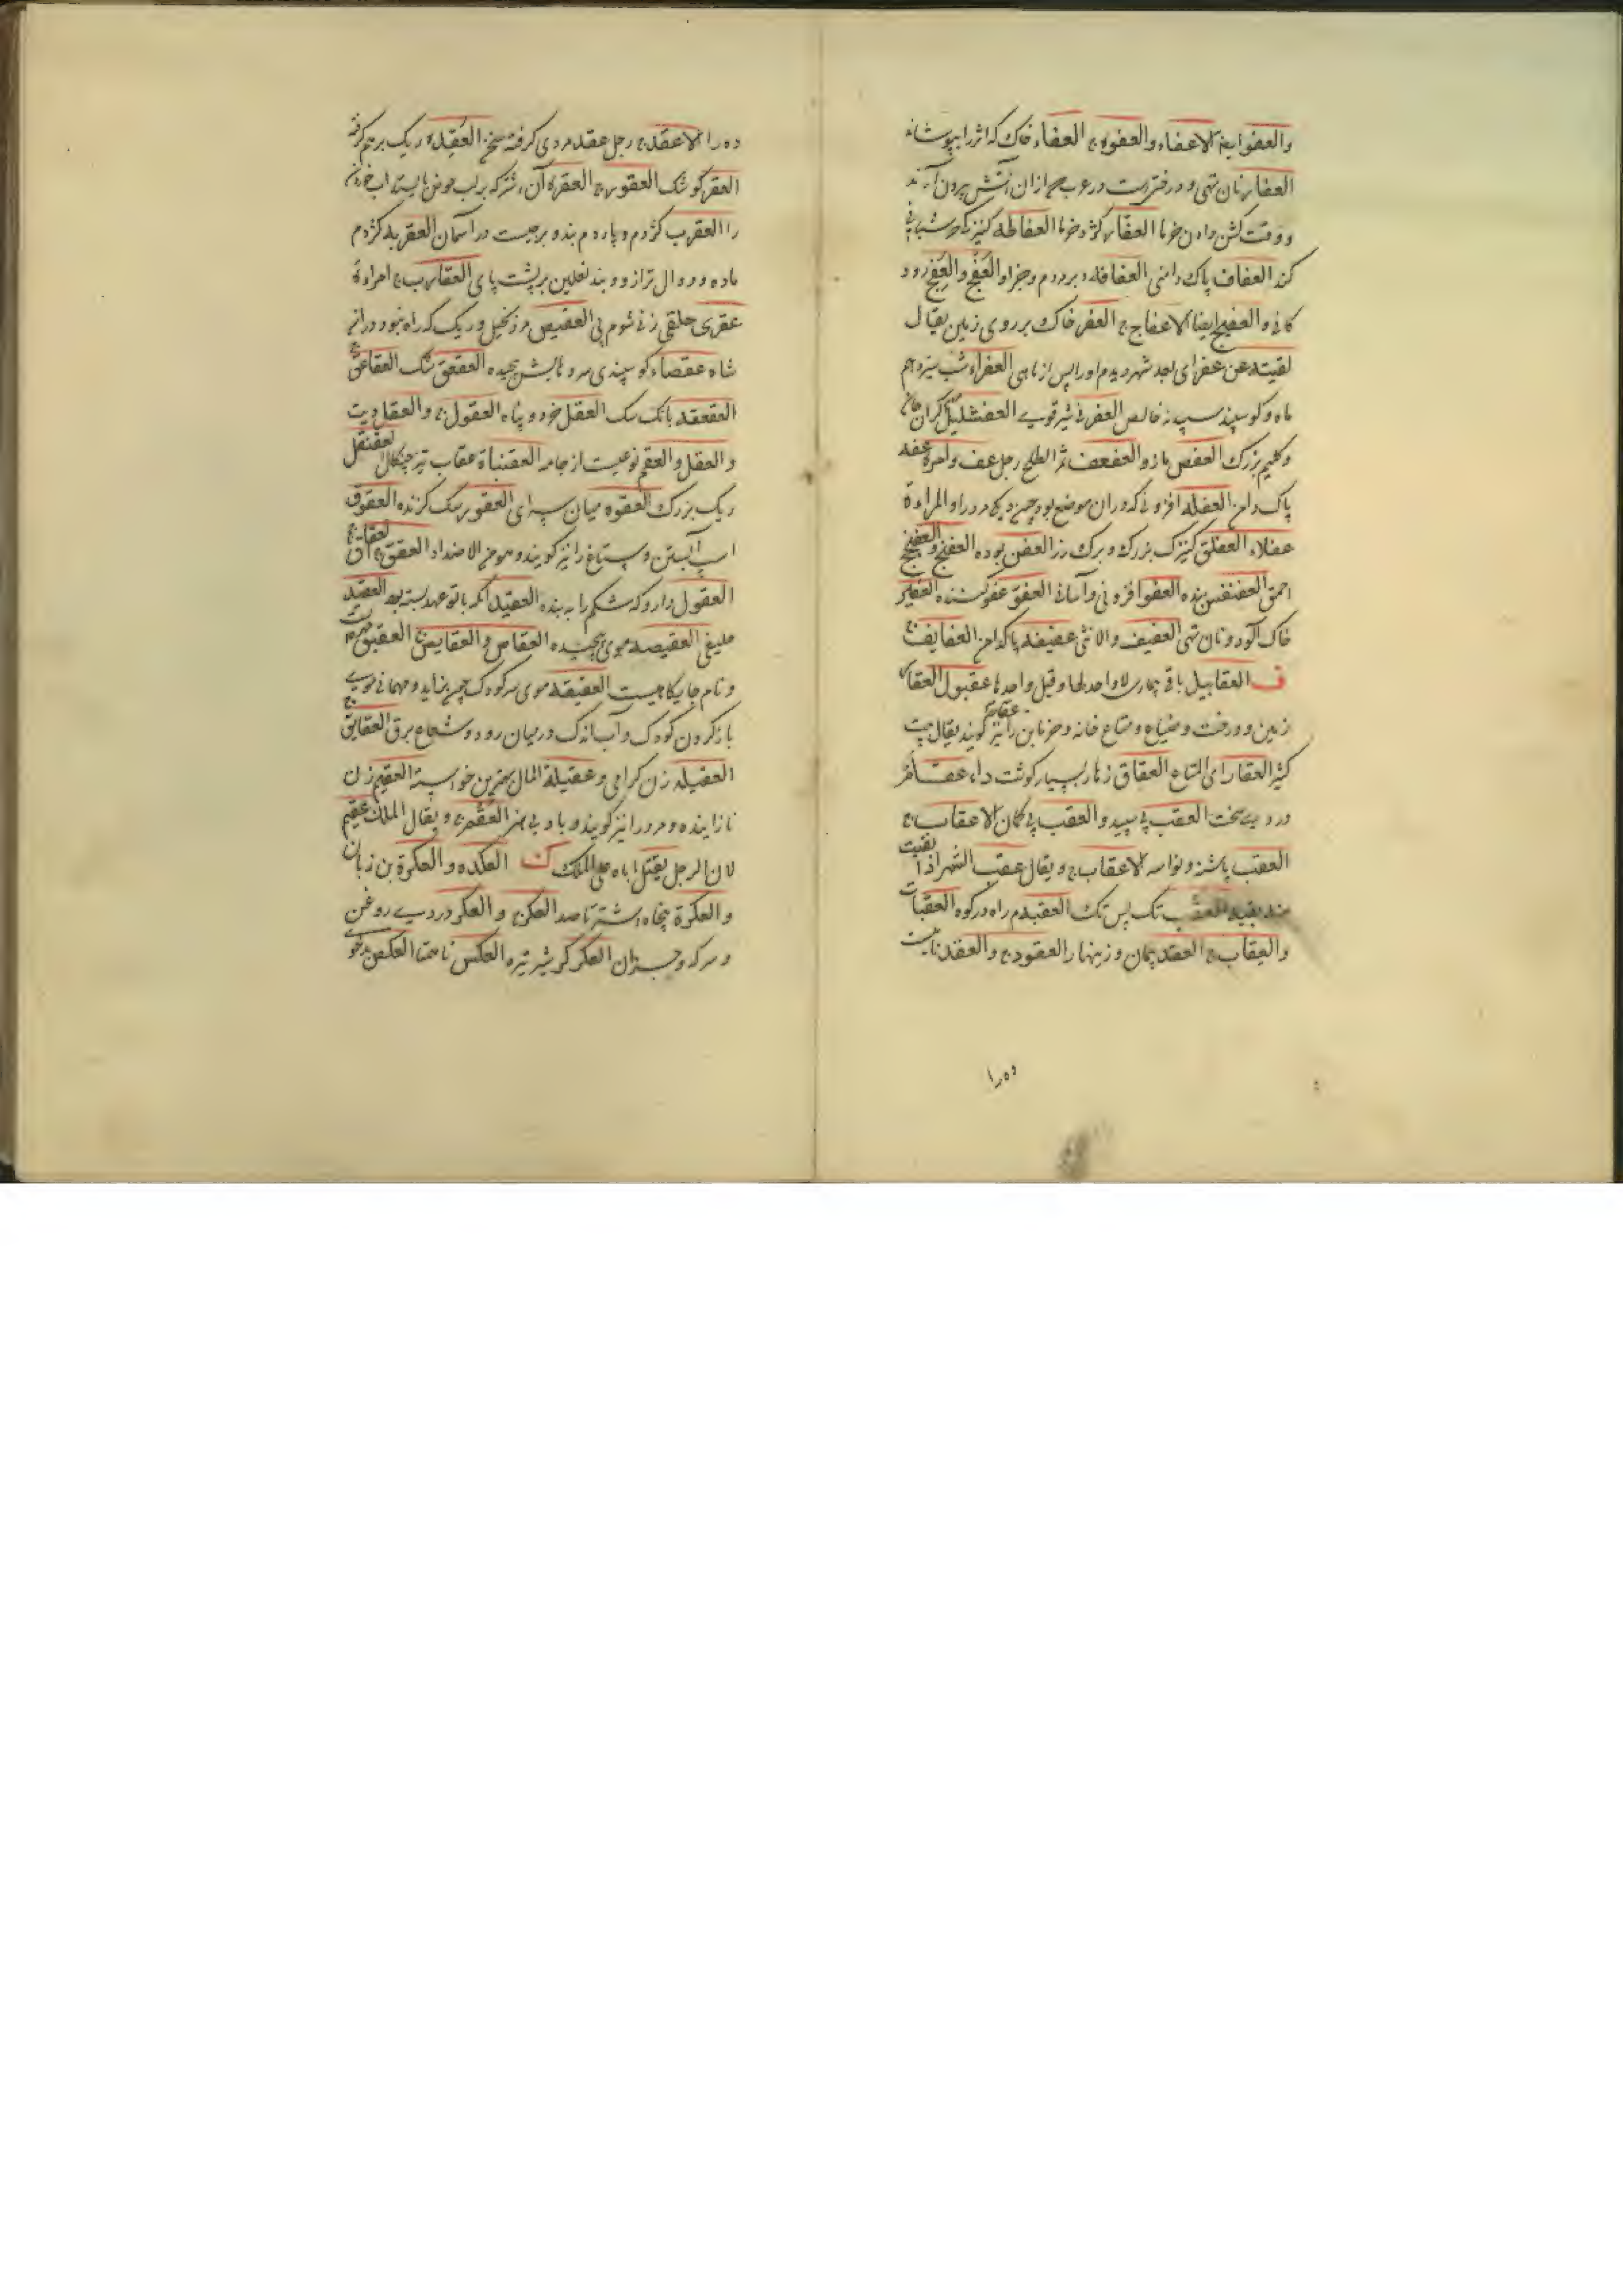 والعفو ایضا الاعفاء والعفوة ج العفاء خاک که اثر را بپوشاند
العفار نان تهی و درختیست در عرب ج از ان آتش بیرون آرند
و وقت کشن دادن خرما العفار کژ و خرما العفاطة کنیزک شبانی
کند العفاف پاک دامنی العفافة و العفج والعفج رود
کانی والعفج ایضا الاعفاج ج العفر خاک بر روی زمین یقال
لقیته عن عفر ای بعد شهر دیدم او را پس از ماهی العفراء شب سیزدهم
ماه و کوسپند سپید خالص العفرنی شیر قوی العفشلیل کران جان
و کلیم بزرک العفص مازو العفعف ثمر الطلح رجل عف وامرة عفة
پاک دامن العفلة افزونی که در ان موضع بود مرد را والمراة
عفلاء العفلق کنیزک بزرک و برک رز العفن بوده العفنج والعفنجج
احمق العفنقس بنده العفو افزونی و آسانی العفو عفو کننده العفیر
خاک آلود و نان تهی العفیف والانثی عفیفة پاکدامن العفایف ج
ف العقابیل باقی بیماری لا واحد لها وقیل واحدها عقبول العقار
زمین و درخت و ضیاع و متاع خانه و خرمابن را نیز کویند یقال بیت
کثیر العقار ای المتاع العقاق زهار بسیار کوشت داء عقام
دردی سخت العقب پی سپید والعقب پی کمان الاعقاب ج
العقب پاشنه و نواسه الاعقاب ج ویقال عقب الشهر اذا بقیت
منه بقیة العقب تک پس تک العقبة دم راه در کوه العقبات
والعقاب ج العقد پیمان و زینهار العقود ج والعقد
ده را
ده را الاعقد ج رجل عقد مردی کرفته سخن العقدة ریک برهم کرفته
العقر کوشک العقور ج العقرة آن شتر که بر لب حوض بایستد آب خوردن
را العقرب کژدم و پاردم بند و برجیست در آسمان العقربة کژدم
ماده و دوال ترازو و بند نعلین بر پشت پای العقارب ج امراة
عقری حلقی زنی شوم پی العقص مرد بخیل و ریک که راه نبود در آن
شاة عقصاء کوسپندی سرو پیچیده العقعق شک العقاعق ج
العقعقة بانک شک العقل خرد و پناه العقول ج والعقل دیت
والعقل والعقم نوعیست از جامه العقنباة عقاب تیز چنکال العقنقل
ریک بزرک العقوة میان سرای العقور سک کزنده العقوق
اسپ آبستن و ستاغ را نیز کویند وهو من الاضداد العقق ج العقاق ج
العقول دارو که شکم را ببندد العقید آنکه با تو عهد بسته بود العقید
حلیف العقیصة موی پیچیده العقاص والعقایص ج العقیق
و نام جایکاهیست العقیقة موی سر کودک چون بزاید و مهمانی موی
باز کردن کودک و آب اندک در میان رود و شعاع برق العقایق ج
العقیلة زن کرامی وعقیلة المال بهترین خواسته العقیم زن
نازاینده و مرد را نیز کویند و باد بی نفع العقم ج ویقال الملک عقیم
لان الرجل یقتل اباه علی الملک ک العکدة والعکرة بن زبان
والعکرة پنجاه اشتر تا صد العکر ج والعکر دردی روغن
و سرکه و جز ان العکرکر شیر تیره العکس ناهمتا العکص بدخو